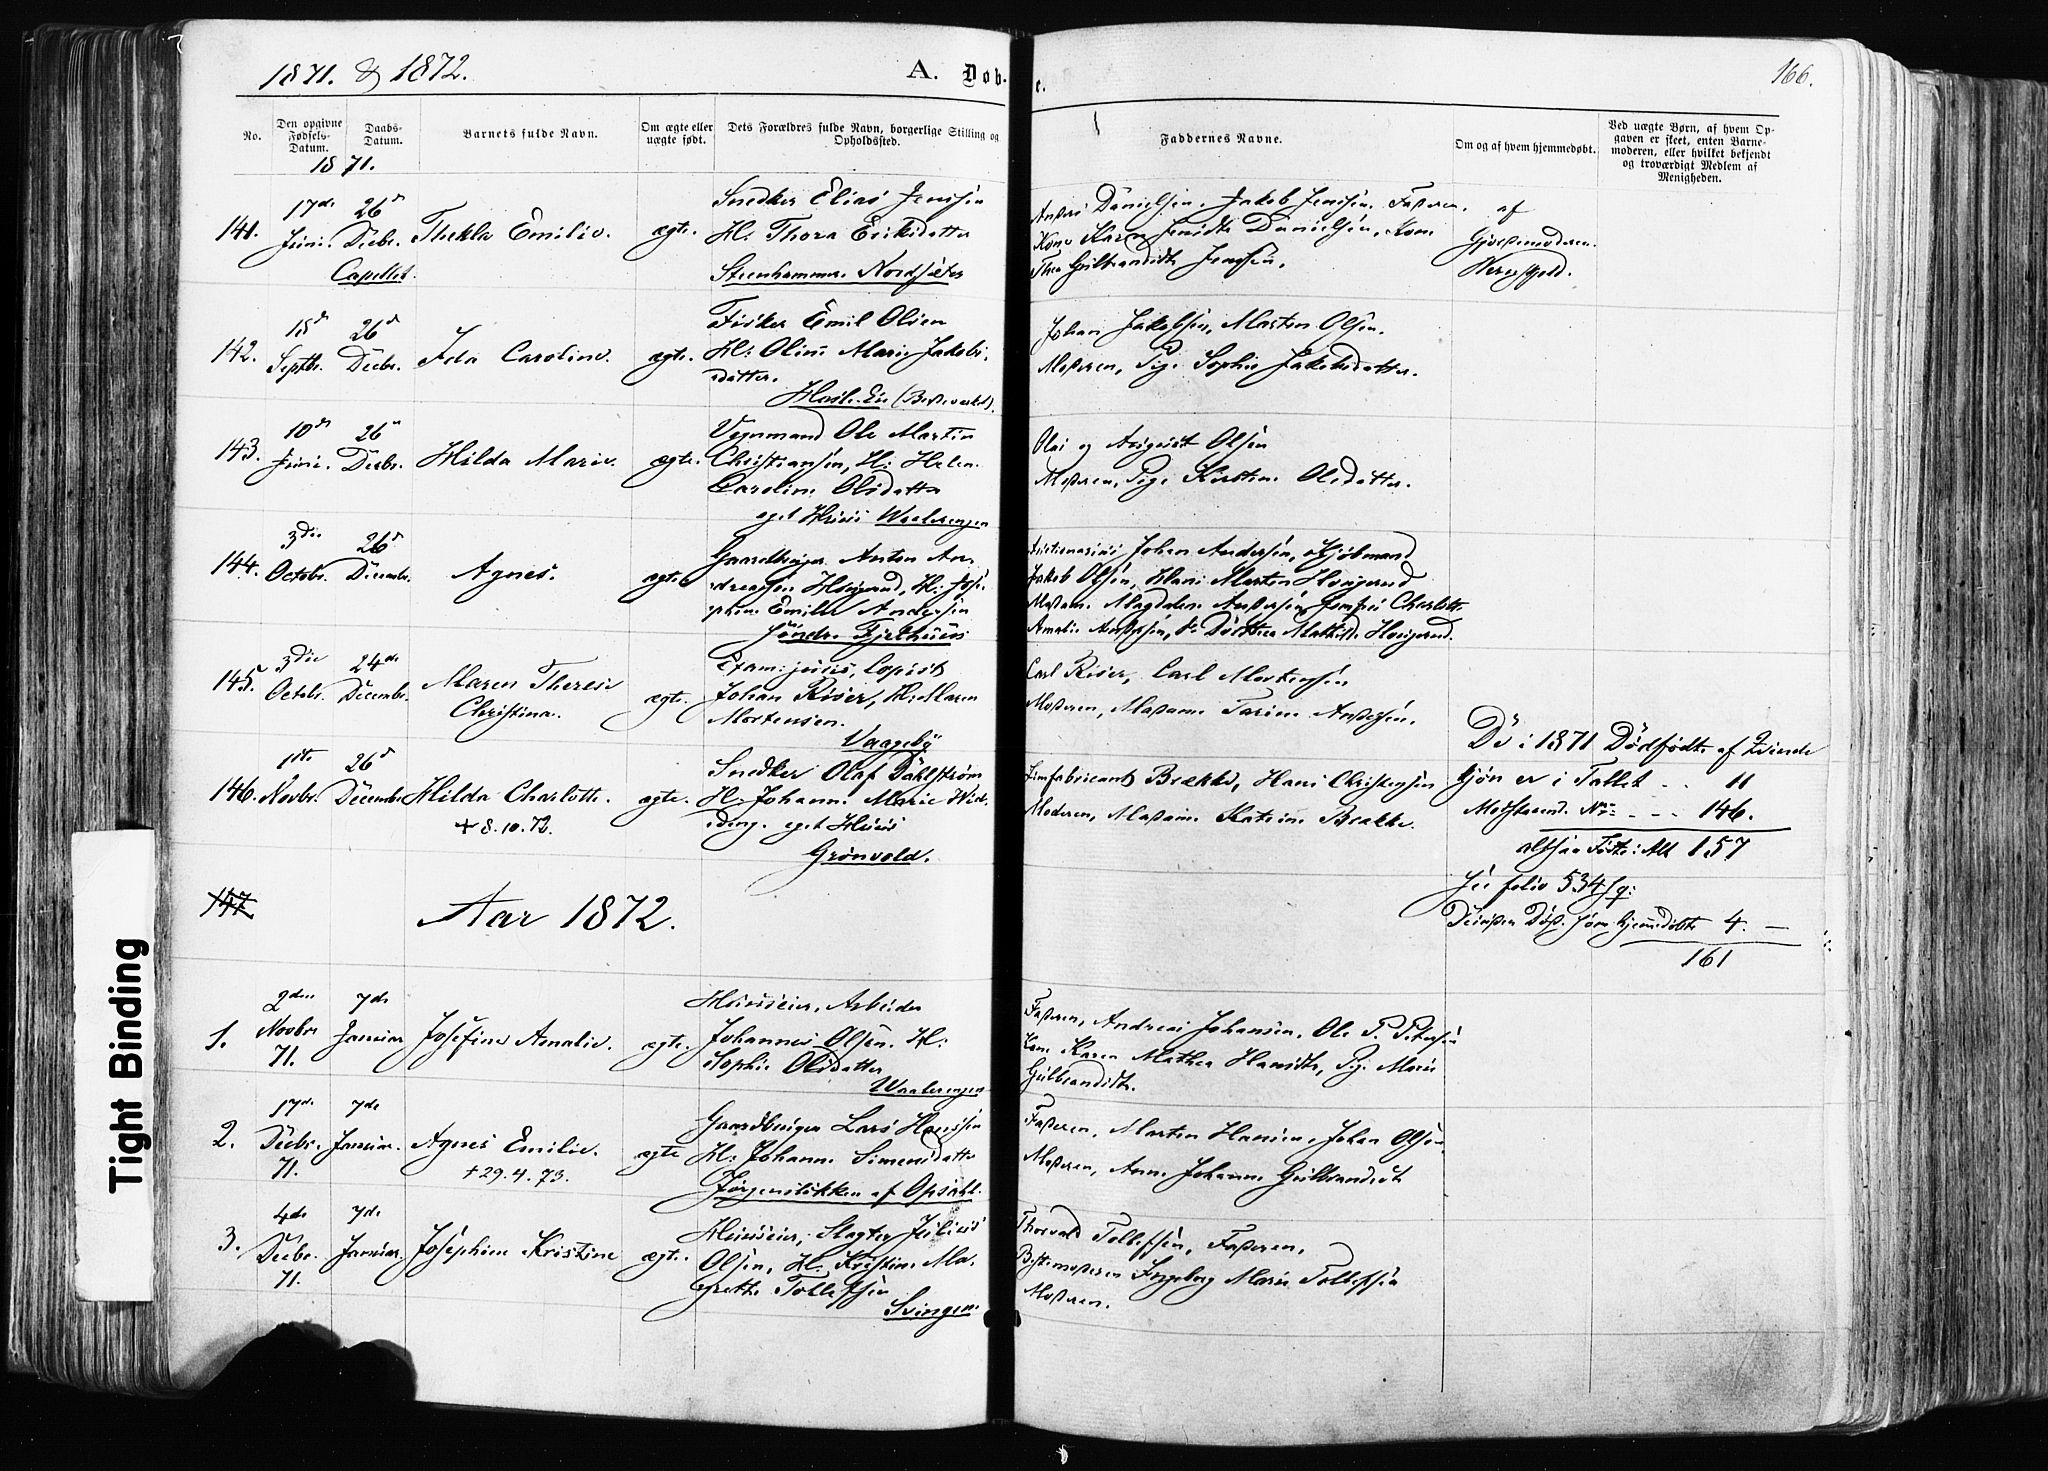 1871. & 1872.
A. Døb-
e.
166.
No.
Den opgivne Fødsels-Datum.
Daabs-Datum.
Barnets fulde Navn.
Om ægte eller uægte født.
Dets Forældres fulde Navn, borgerlige Stilling og Opholdssted.
Faddernes Navne.
Om og af hvem hjemmedøbt.
Ved uægte Børn, af hvem Op-
gaven er skeet, enten Barne-
moderen, eller hvilket bekjendt
og troværdigt Medlem af
Menigheden.
1871.
141.
17de Juni.
26d Decbr.
Capellet.
Thekla Emilie.
ægte.
Snedker Elias Jenssen
H: Thora Eriksdatter
Steenhammer Nordsæter
Jakob Jenssen, Faderen,
Kone Karen Danielsen, Kone
Thea Gulbrandsdt Jenssen.
af
Gjordemoderen
142.
Septbr.
26d Decbr.
Ida Caroline.
ægte.
Fisker Emil Olsen
H: Oline Marie Jakobs-
datter.
Johan Jakobsen, Marten Olsen.
Moderen, Pige Sophie Jakobsdatter.
143.
10de Juni.
26d Decbr.
Hilda Marie.
ægte.
Vognmand Ole Martin
Christiansen, H: Helene
Caroline Olsdatter
eget Huus Waalerengen
Olai og August Olsen
Moderen, Pige Kirstine Olsdatter.
144.
3die Octobr.
26d Decembr.
Agnes.
ægte
Gaardbruger Anton An-
dreassen H: Jose-
phine Emilie Andersen
Søndre Fjeldhuus
Johan Andersen, Kjøbmand
Jakob Olsen, Hans Morten
Madam Magdalene Andersen, Jomfru Charlotte
Amalie Andersen, do Dorthea Mathilde
145.
3die Octobr.
24de Decembr.
Maren Therese
Christina.
ægte.
Exam: juris, Copist
Johan Riser, H: Maren
Mortensen.
Vaageby
Carl Riser, Carl Mortensen
Moderen, Madame Andersen.
146.
1ste Novbr.
26d Decembr.
Hilda Charlotte.
+ 8.10.72.
ægte.
Snedker Olaf Dahlstrøm
H: Johanne Marie Wid-
ding. eget Huus
Grønvold.
Limfabricant Brække, Hans Christensen
Moderen, Madame Katrine Brække.
De i 1871 Dødfødte af Qvinde
kjøn er i Tallet . . 11
Modstaaend. No: - - - 146.
altsaa Fødte i Alt 157
See folio 534 fg:
Desuden Døbt som hjemmedøbte 4. —
161
147
Aar 1872.
1.
2den Novbr 71.
7de Januar
Josefine Amalie.
ægte.
Huuseier, Arbeider
Johannes Olsen. H:
Sophie Olsdatter
Waalerengen
Faderen, Andreas Johansen, Ole P. Petersen
Kone Karen Mathea Hansdt, Pige Marie
Gulbrandsdt.
2.
17de Decbr. 71.
7de Januar.
Agnes Emilie.
+ 29.4.73.
ægte
Gaardbruger Lars Hanssen
H: Johanne Simensdatter
Jørgensløkken af Opsahl.
Faderen, Marten Hansen, Johan Olsen,
Moderen, Anne Johanne Gulbrandsdt
3.
4de Decbr. 71.
7de Januar.
Josephine Kristine
ægte.
Huuseier, Slagter Julius
Olsen, H: Kristine Ma-
grethe Tollefsen
Svingen.
Thorvald Tollefsen, Faderen,
Bestemoderen Ingeborg Marie Tollefsen
Moderen.
Tight Binding